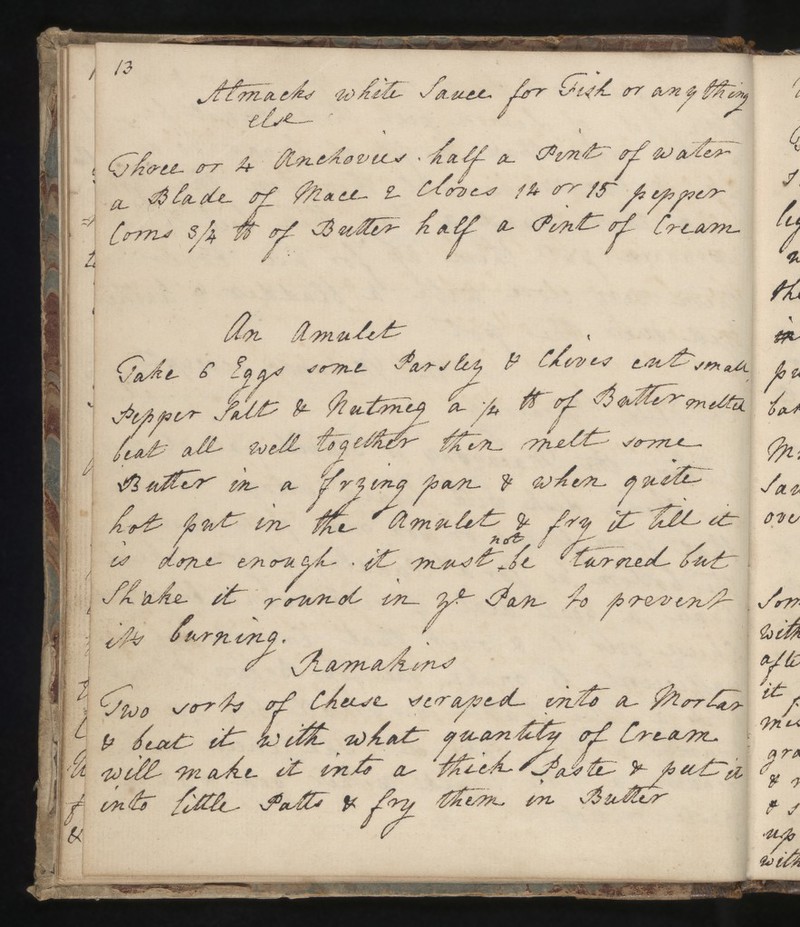 13
Almacks white Sauce for Fish or any thing
else
Three or 4 Anchovies half a Pint of water
a Blade of Mace 2 Cloves 14 or 15 pepper
Corns 3/4 lb of Butter half a Pint of Cream
An Amulet
Take 6 Eggs some Parsley & Chives cut small
Pepper Salt & Nutmeg a 1/4 lb of Butter melted
beat all well together then melt some
Butter in a frying pan & when quite
hot put in the Amulet & fry it till it
is done enough. it must not be turned but
Shake it round in ye Pan to prevent
its burning.
Ramakins
Two sorts of Cheese scraped into a Mortar
& beat it with what quantity of Cream
will make it into a thick Paste & put it
into little Patts & fry them in Butter